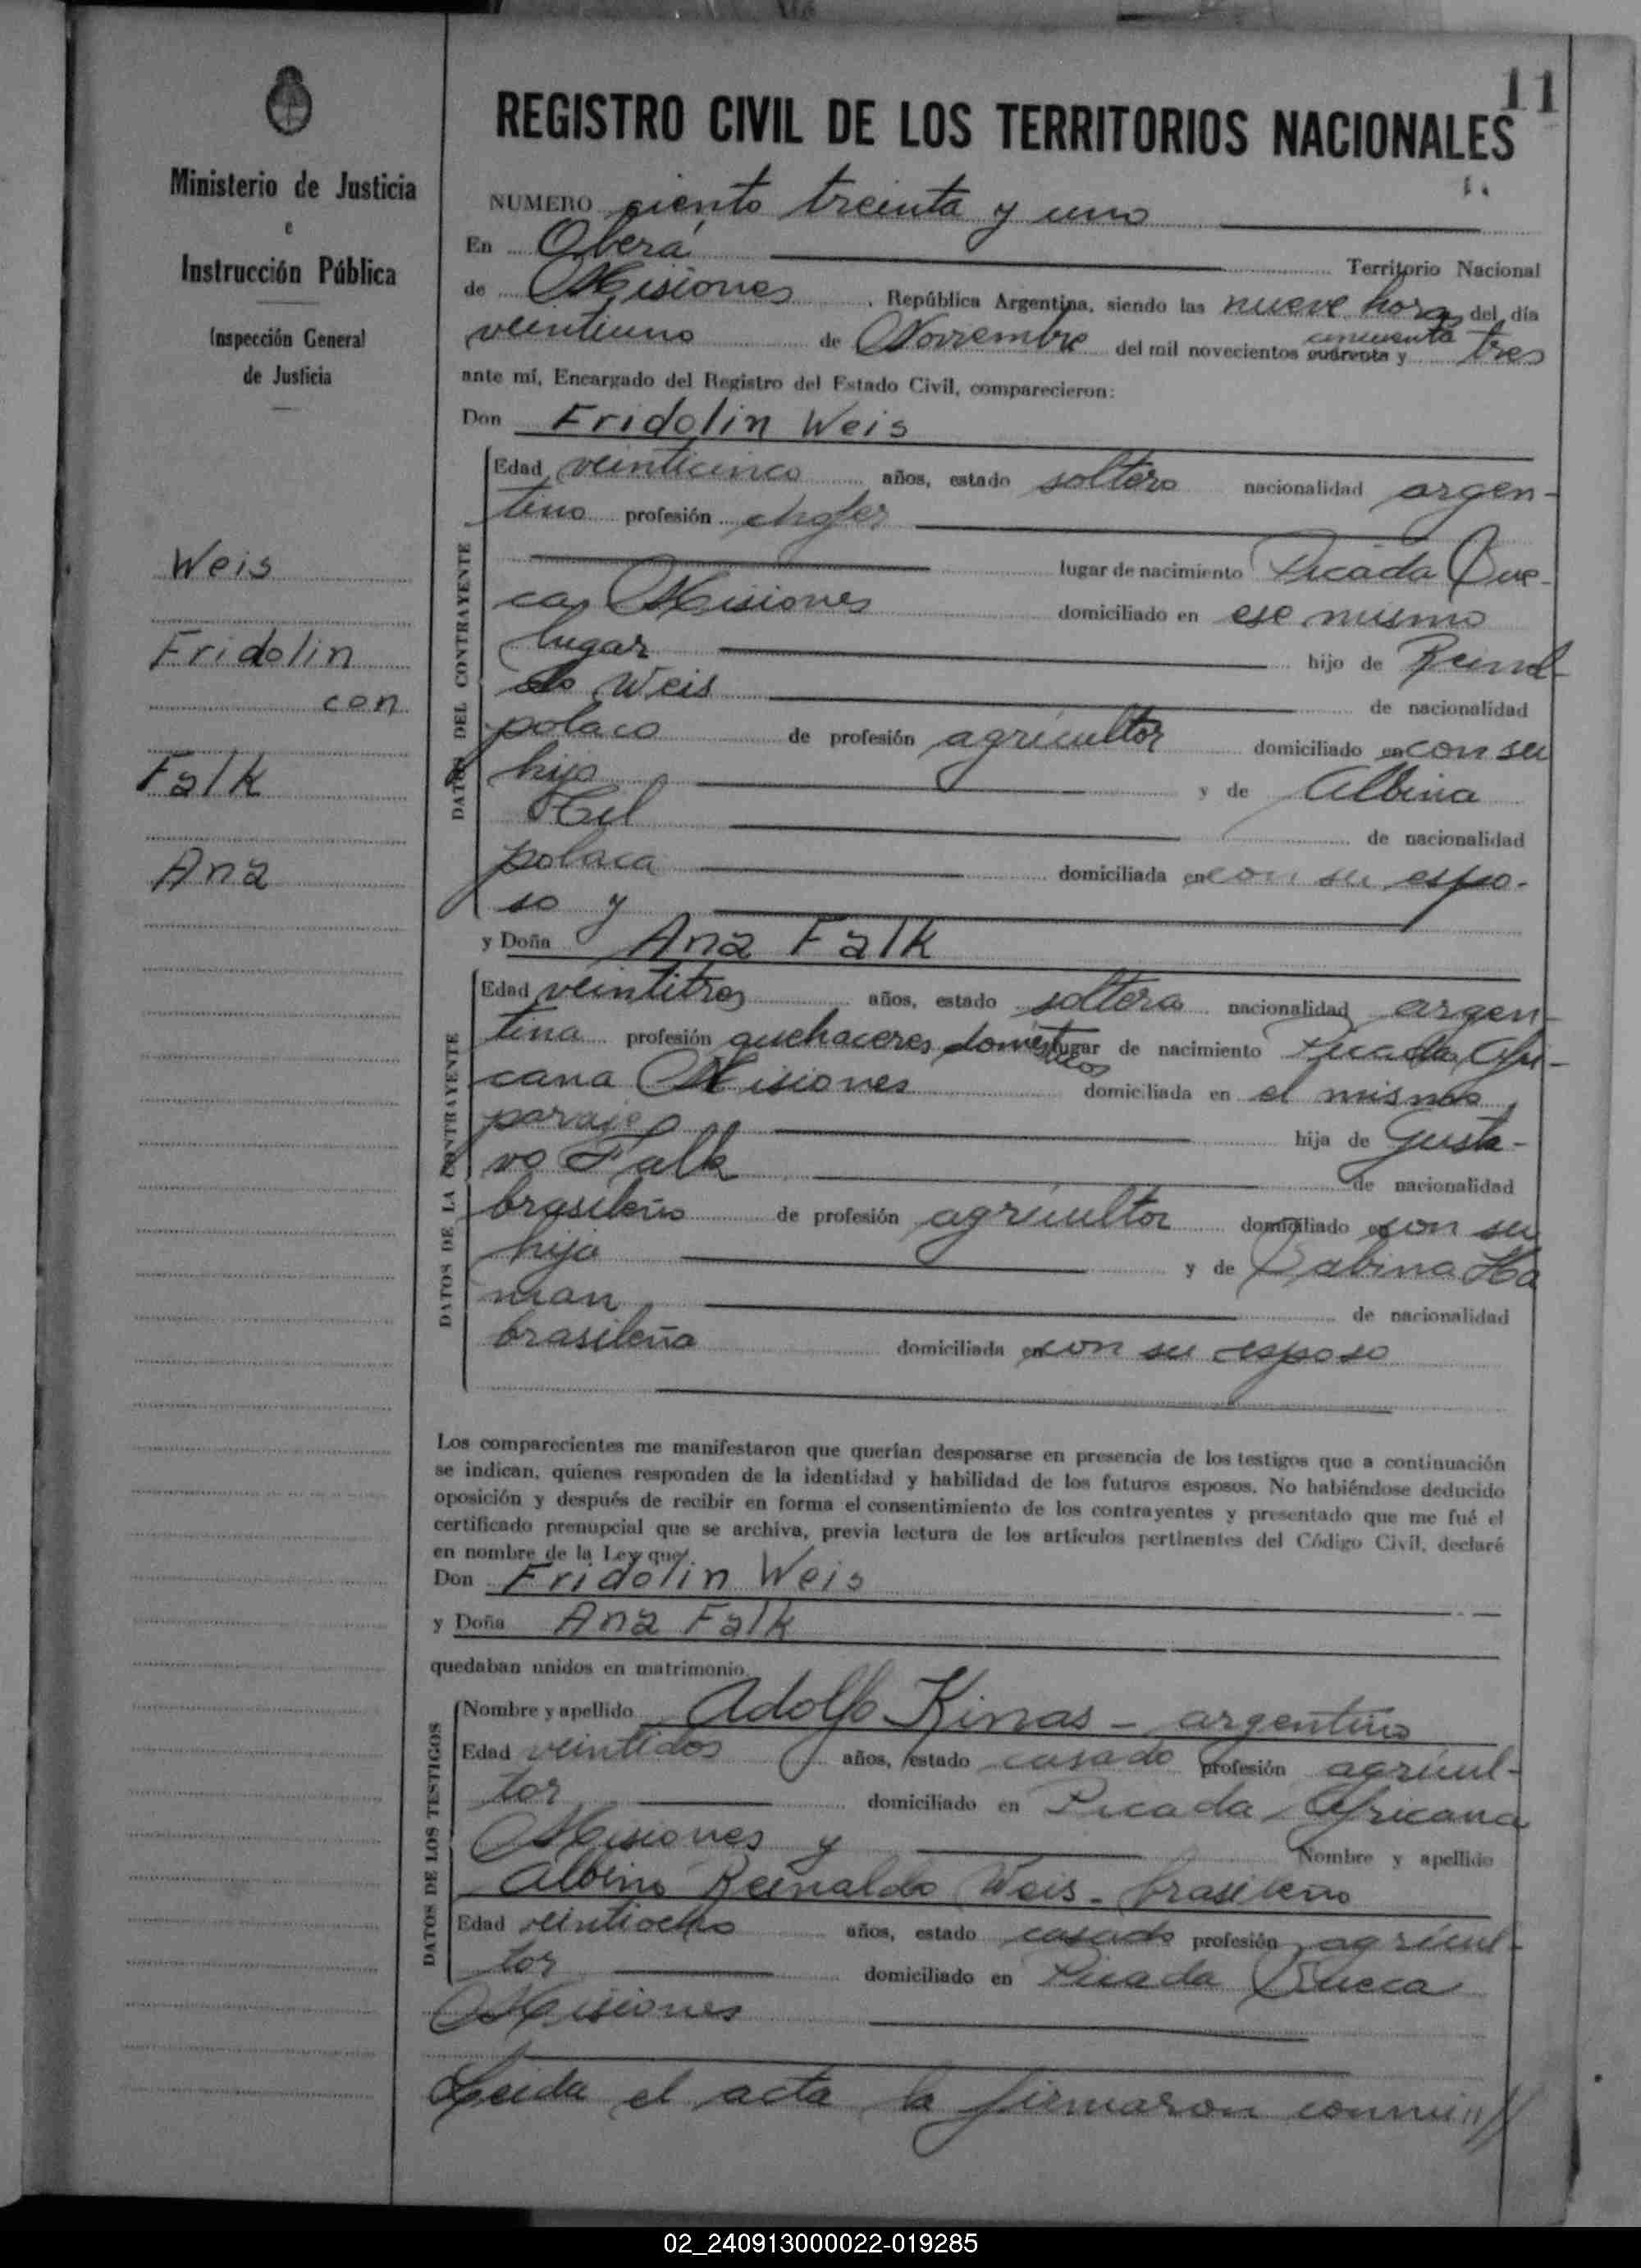 11
REGISTRO CIVIL DE LOS TERRITORIOS NACIONALES
Ministerio de Justicia
e
Instrucción Pública
Inspección General
de Justicia
Weis
Fridolin
con
Falk
Ana
NUMERO ciento treinta y uno
En Oberá Territorio Nacional
de Misiones, República Argentina, siendo las nueve horas del día
cincuenta
veintiuno de Noviembre del mil novecientos cuarenta y tres
ante mí, Encargado del Registro del Estado Civil, comparecieron:
Don Fridolin Weis
DATOS DEL CONTRAYENTE
Edad veinticinco años, estado soltero nacionalidad argen-
tino profesión chofer
lugar de nacimiento Picada Sue-
ca, Misiones domiciliado en ese mismo
lugar hijo de Reinal-
do Weis de nacionalidad
polaco de profesión agricultor domiciliado en con su
hijo y de Albina
Hel de nacionalidad
polaca domiciliada en con su espo-
so y
y Doña Ana Falk
DATOS DE LA CONTRAYENTE
Edad veintitres años, estado soltera nacionalidad argen-
tina profesión quehaceres domésticos lugar de nacimiento Picada Afri-
cana Misiones domiciliada en el mismo
paraje hija de Gusta-
vo Falk de nacionalidad
brasileño de profesión agricultor domiciliado en con su
hija y de Sabina Ha
man de nacionalidad
brasileña domiciliada en con su esposo
Los comparecientes me manifestaron que querían desposarse en presencia de los testigos que a continuación
se indican, quienes responden de la identidad y habilidad de los futuros esposos. No habiéndose deducido
oposición y después de recibir en forma el consentimiento de los contrayentes y presentado que me fué el
certificado prenupcial que se archiva, previa lectura de los artículos pertinentes del Código Civil, declaré
en nombre de la Ley que:
Don Fridolin Weis
y Doña Ana Falk
quedaban unidos en matrimonio.
DATOS DE LOS TESTIGOS
Nombre y apellido Adolfo Kinas - argentino
Edad veintidos años, estado casado profesión agricul-
tor domiciliado en Picada Africana
Misiones y Nombre y apellido
Albino Reinaldo Weis - brasileño
Edad veintiocho años, estado casado profesión agricul-
tor domiciliado en Picada Sueca
Misiones
Leida el acta la firmaron conmi//
02_240913000022-019285